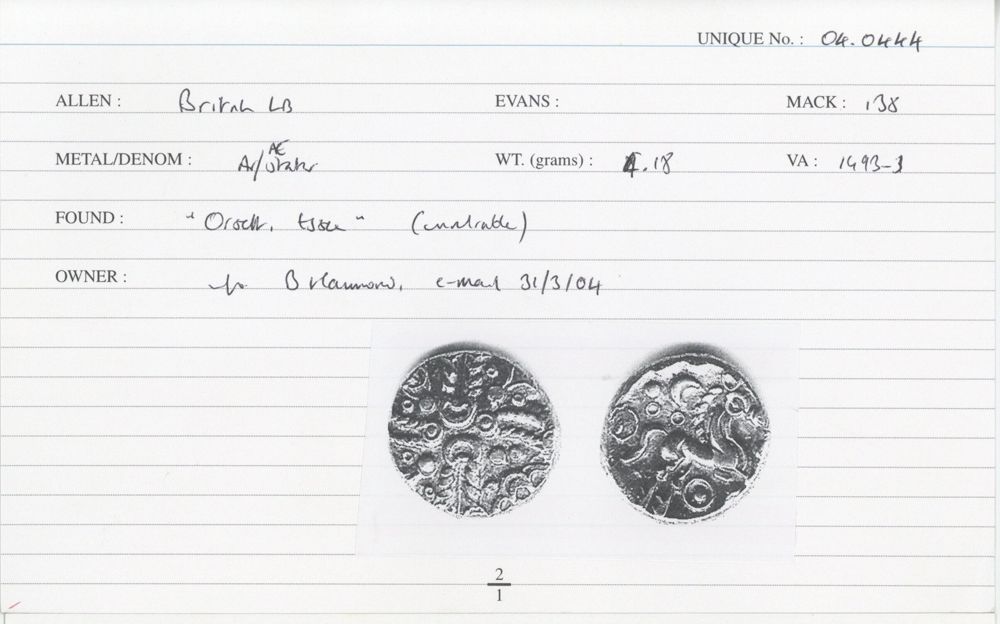 UNIQUE No. : 04.0444
ALLEN : British LB EVANS : MACK : 138
METAL/DENOM : Ar/AE stater WT. (grams) : 4.18 VA : 1493-3
FOUND : "Orsett, Essex" (unreliable)
OWNER : B Hammond, e-mail 31/3/04
2
1